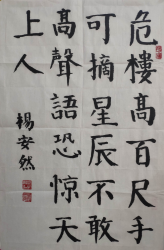 危樓高百尺手
可摘星辰不敢
高聲語恐惊天
上人
楊安然